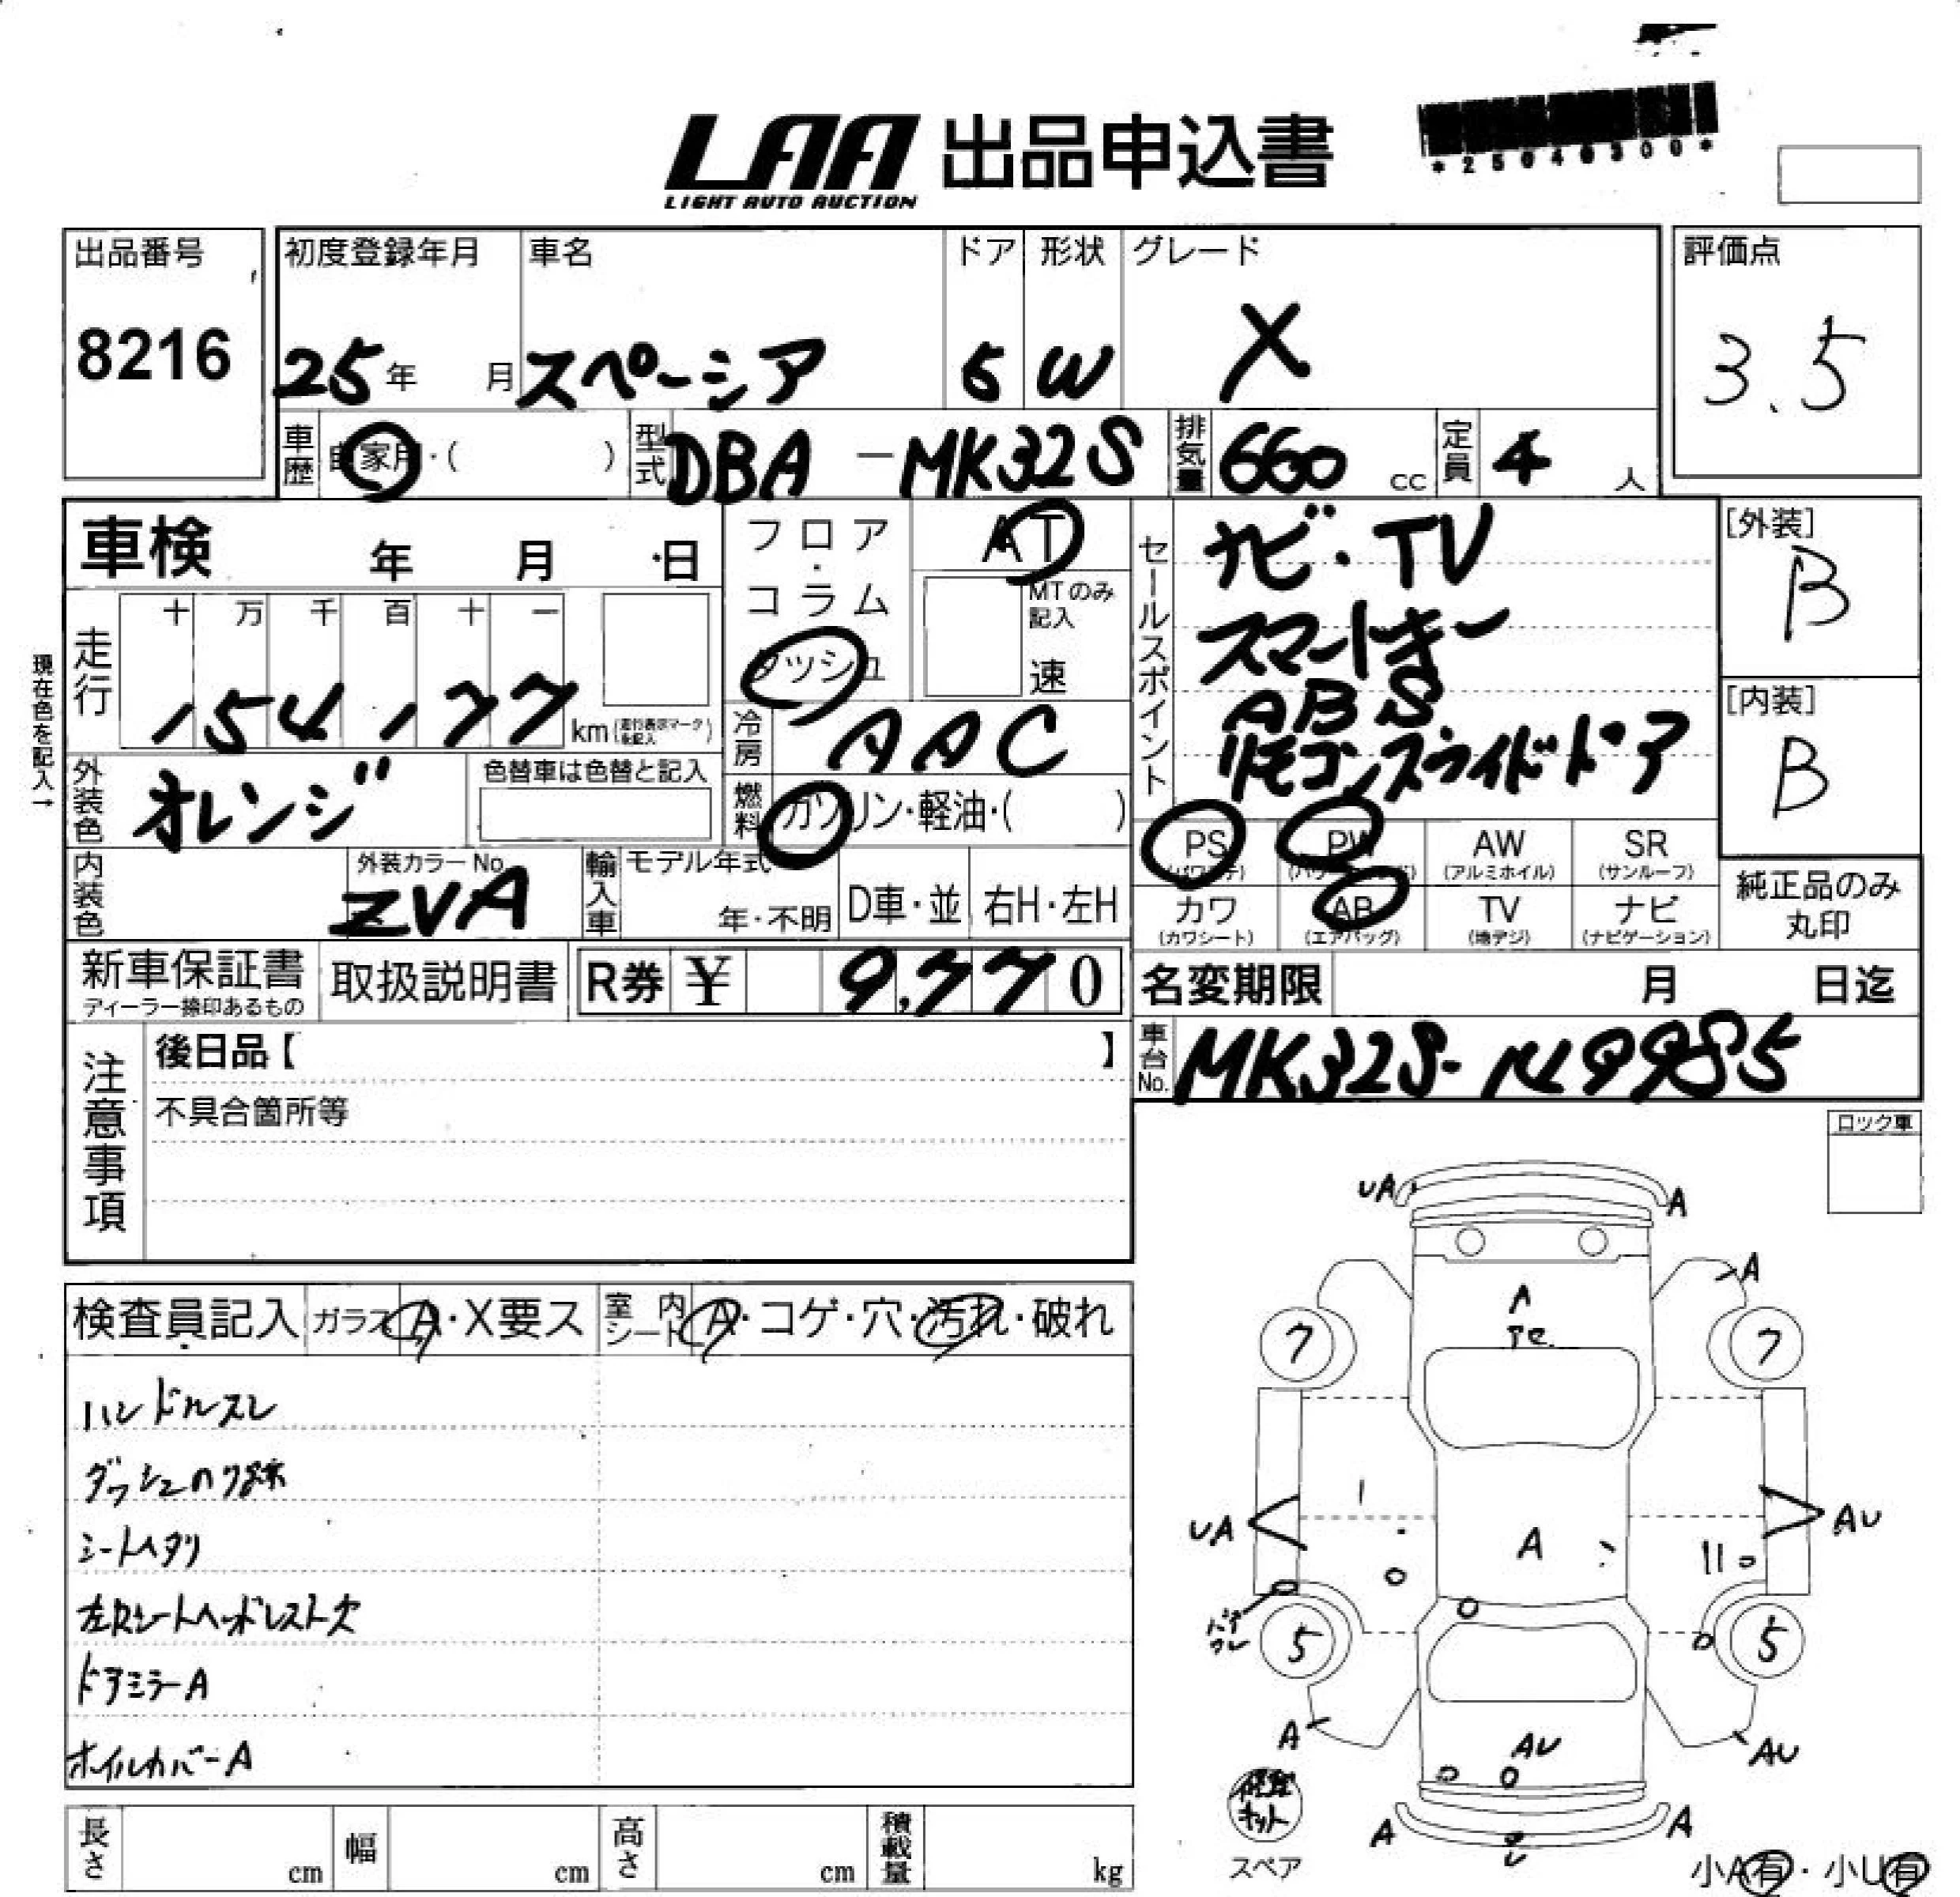 LAA 出品申込書
LIGHT AUTO AUCTION
出品番号
8216
初度登録年月
25年 月
車名
スペーシア
ドア
5
形状
W
グレード
X
評価点
3.5
車歴 自家用・( )
型式 DBA-MK32S
排気量 660 cc
定員 4 人
車検 年 月 日
フロア・コラム
ダッシュ
AT
MTのみ記入
速
セールスポイント
ナビ・TV
スマートキー
ABS
リモコンスライドドア
[外装]
B
[内装]
B
現在色を記入→
走行
十 万 千 百 十 一
154,177 km (走行表示マークを記入)
冷房 AAC
外装色 オレンジ
色替車は色替と記入
燃料 ガソリン・軽油・( )
PS PW AW SR
(アルミホイル) (サンルーフ)
カワ AB TV ナビ
(カワシート) (エアバッグ) (地デジ) (ナビゲーション)
純正品のみ
丸印
内装色
外装カラーNo.
ZVA
輸入車
モデル年式
年・不明
D車・並
右H・左H
新車保証書
ディーラー捺印あるもの
取扱説明書
R券 ¥ 9,770
名変期限 月 日迄
車台No. MK32S-149985
注意事項
後日品【 】
不具合箇所等
ロック車
検査員記入 ガラス A・X要ス 室内シート A・コゲ・穴・汚れ・破れ
ハンドルスレ
シートヘタリ
左Rシートヘッドレスト欠
ドアミラーA
ホイルカバーA
UA A
A
A
7 7
UA A AU
5 5
A AU AU
A A
修理キット
スペア
小A有・小U有
長さ cm
幅 cm
高さ cm
積載量 kg